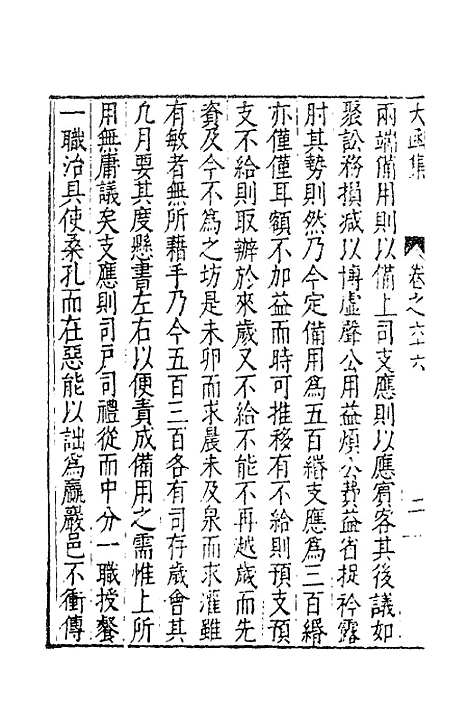 大函集 卷之六十六 二
兩端備用則以備上司支應則以應賓客其後議如
聚訟務損減以博虛聲公用益煩公費益省捉衿露
肘其勢則然乃今定備用爲五百緡支應爲三百緡
亦僅僅耳額不加益而時可推移有不給則預支預
支不給則取辦於來歲又不給不能不再越歲而先
資及今不爲之坊是未卵而求晨未及泉而求灌雖
有敏者無所藉手乃今五百三百各有司存歲會其
几月要其度懸書左右以便責成備用之需惟上所
用無庸議矣支應則司戶司禮從而中分一職授餐
一職治具使桑孔而在惡能以詘爲贏嚴邑不衝傳